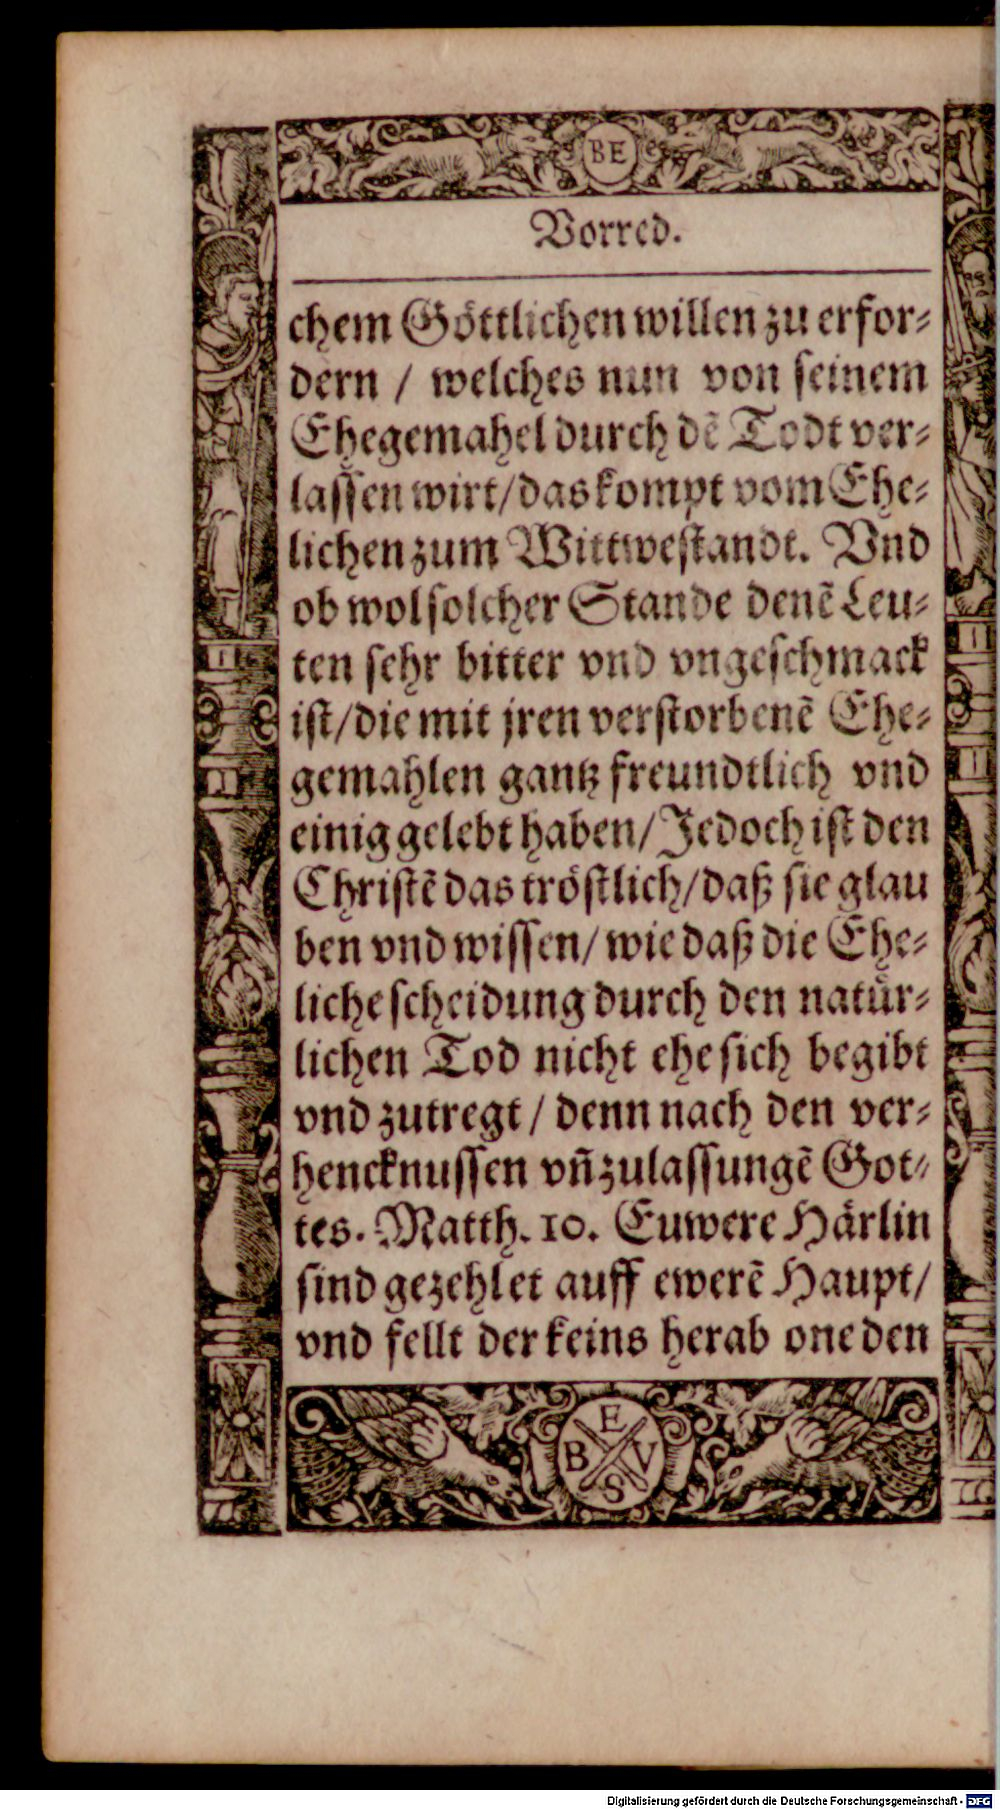 BE
Vorred.
chem Göttlichen willen zu erfor⸗
dern / welches nun von seinem
Ehegemahel durch dẽ Todt ver⸗
lassen wirt/das kompt vom Ehe⸗
lichen zum Wittwestandt. Vnd
ob wol solcher Stande denẽ Leu⸗
ten sehr bitter vnd vngeschmack
ist/die mit jren verstorbenẽ Ehe⸗
gemahlen gantz freundtlich vnd
einig gelebt haben/Jedoch ist den
Christẽ das tröstlich/daß sie glau
ben vnd wissen/ wie daß die Ehe⸗
liche scheidung durch den natür⸗
lichen Tod nicht ehe sich begibt
vnd zutregt / denn nach den ver⸗
hencknussen vñ zulassungẽ Got⸗
tes. Matth. 10. Euwere Härlin
sind gezehlet auff ewerẽ Haupt/
vnd fellt der keins herab one den
E
B V
S
Digitalisierung gefördert durch die Deutsche Forschungsgemeinschaft - DFG